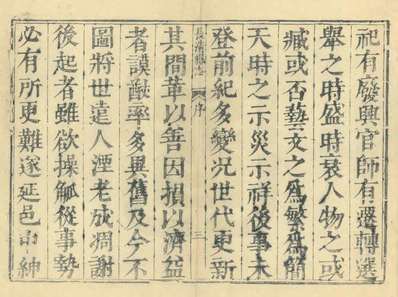 祀有廢興官師有遷轉選
舉之時盛時衰人物之或
臧或否藝文之爲繁爲簡
天時之示災示祥後事未
登前紀多變况世代更新
長清縣志 序 三
其間革以善因損以濟益
者謨猷率多異舊及今不
圖將世遠人湮老成凋謝
後起者雖欲操觚從事勢
必有所更難遂延邑中紳